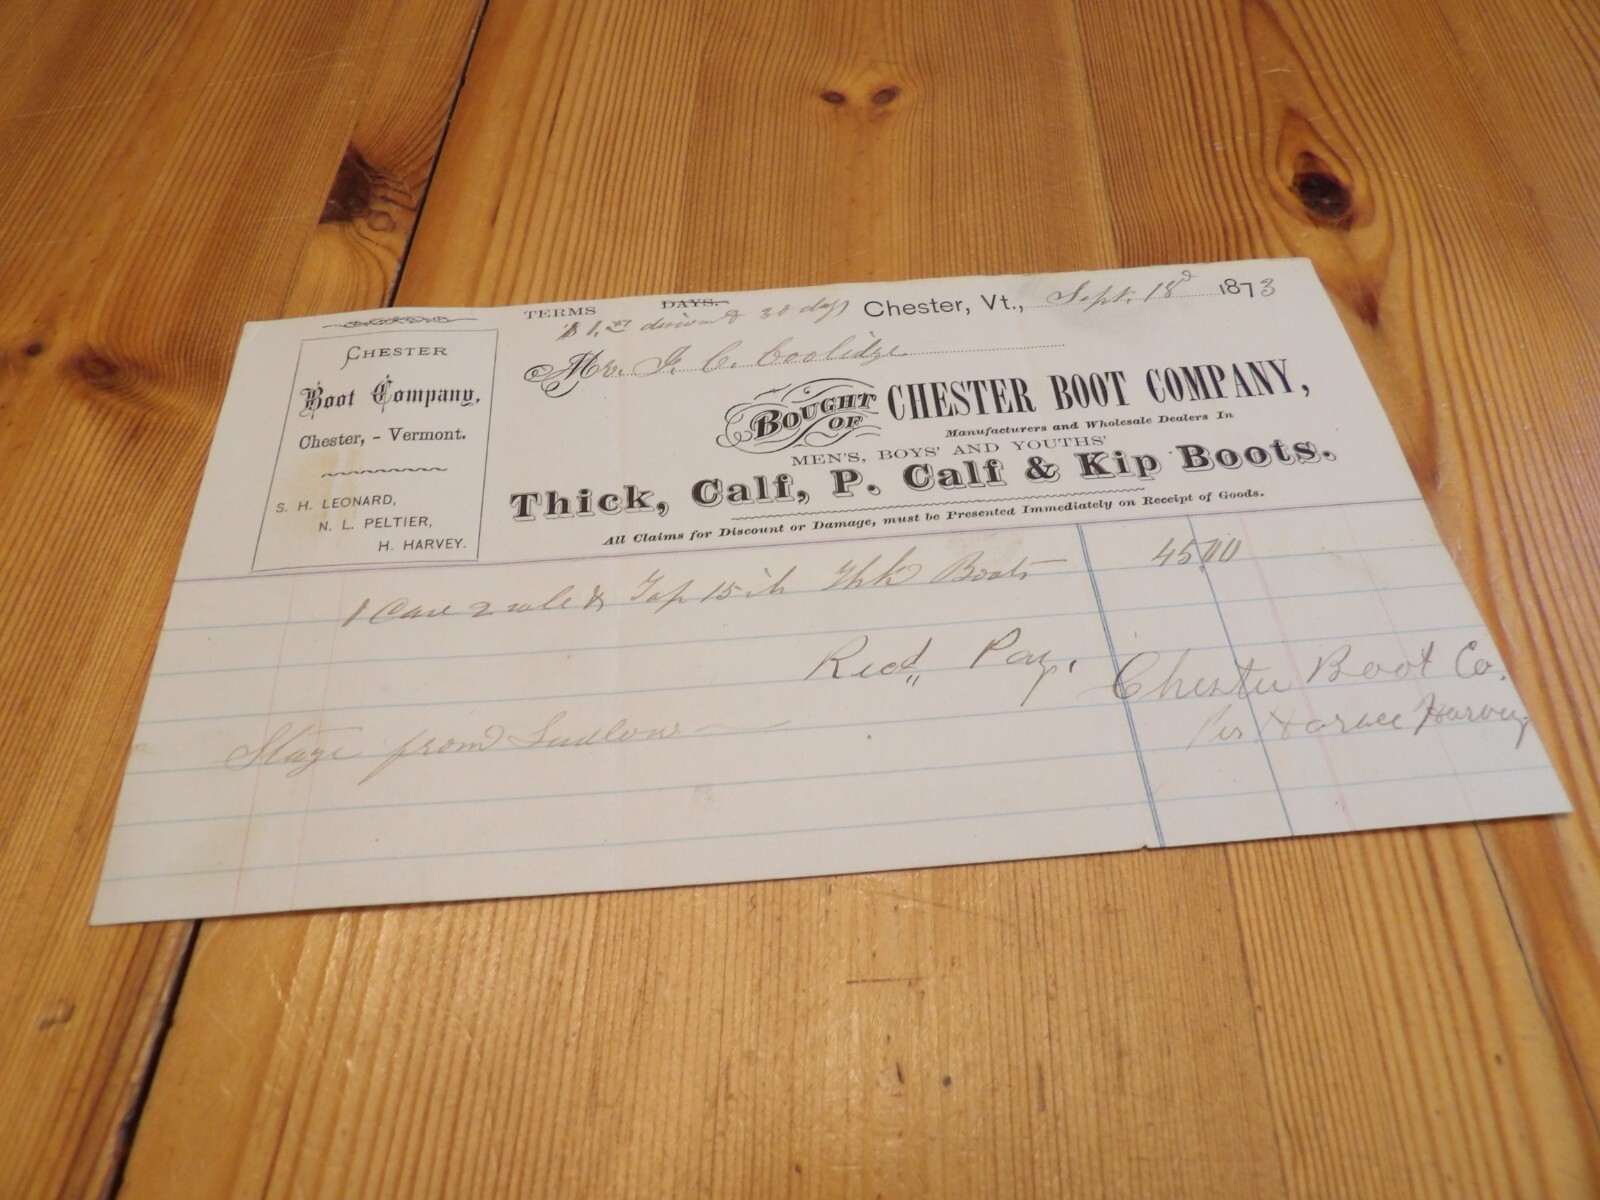 CHESTER
Boot Company,
Chester, - Vermont.
S. H. LEONARD,
N. L. PELTIER,
H. HARVEY.
TERMS DAYS.
$1.00 discount 30 days
Chester, Vt., Sept. 18d 1873
Mr. J. C. Coolidge
BOUGHT OF CHESTER BOOT COMPANY,
Manufacturers and Wholesale Dealers In
MEN'S, BOYS' AND YOUTHS'
Thick, Calf, P. Calf & Kip Boots.
All Claims for Discount or Damage, must be Presented Immediately on Receipt of Goods.
1 Case 2 sole & Tap 15 ih Thk Boots 45.00
Recd,, Pay,
Chester Boot Co.
Per Horace Harvey
Stage from Ludlow